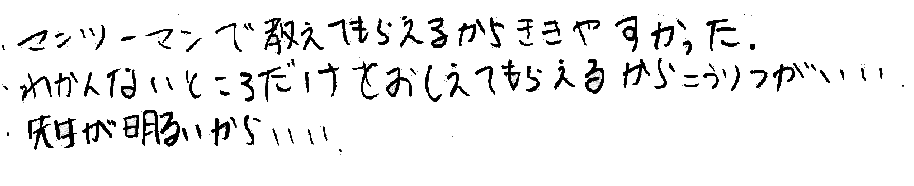 ・マンツーマンで教えてもらえるからききやすかった.
・わかんないところだけをおしえてもらえるからこうりつがいい.
・先生が明るいからいい.